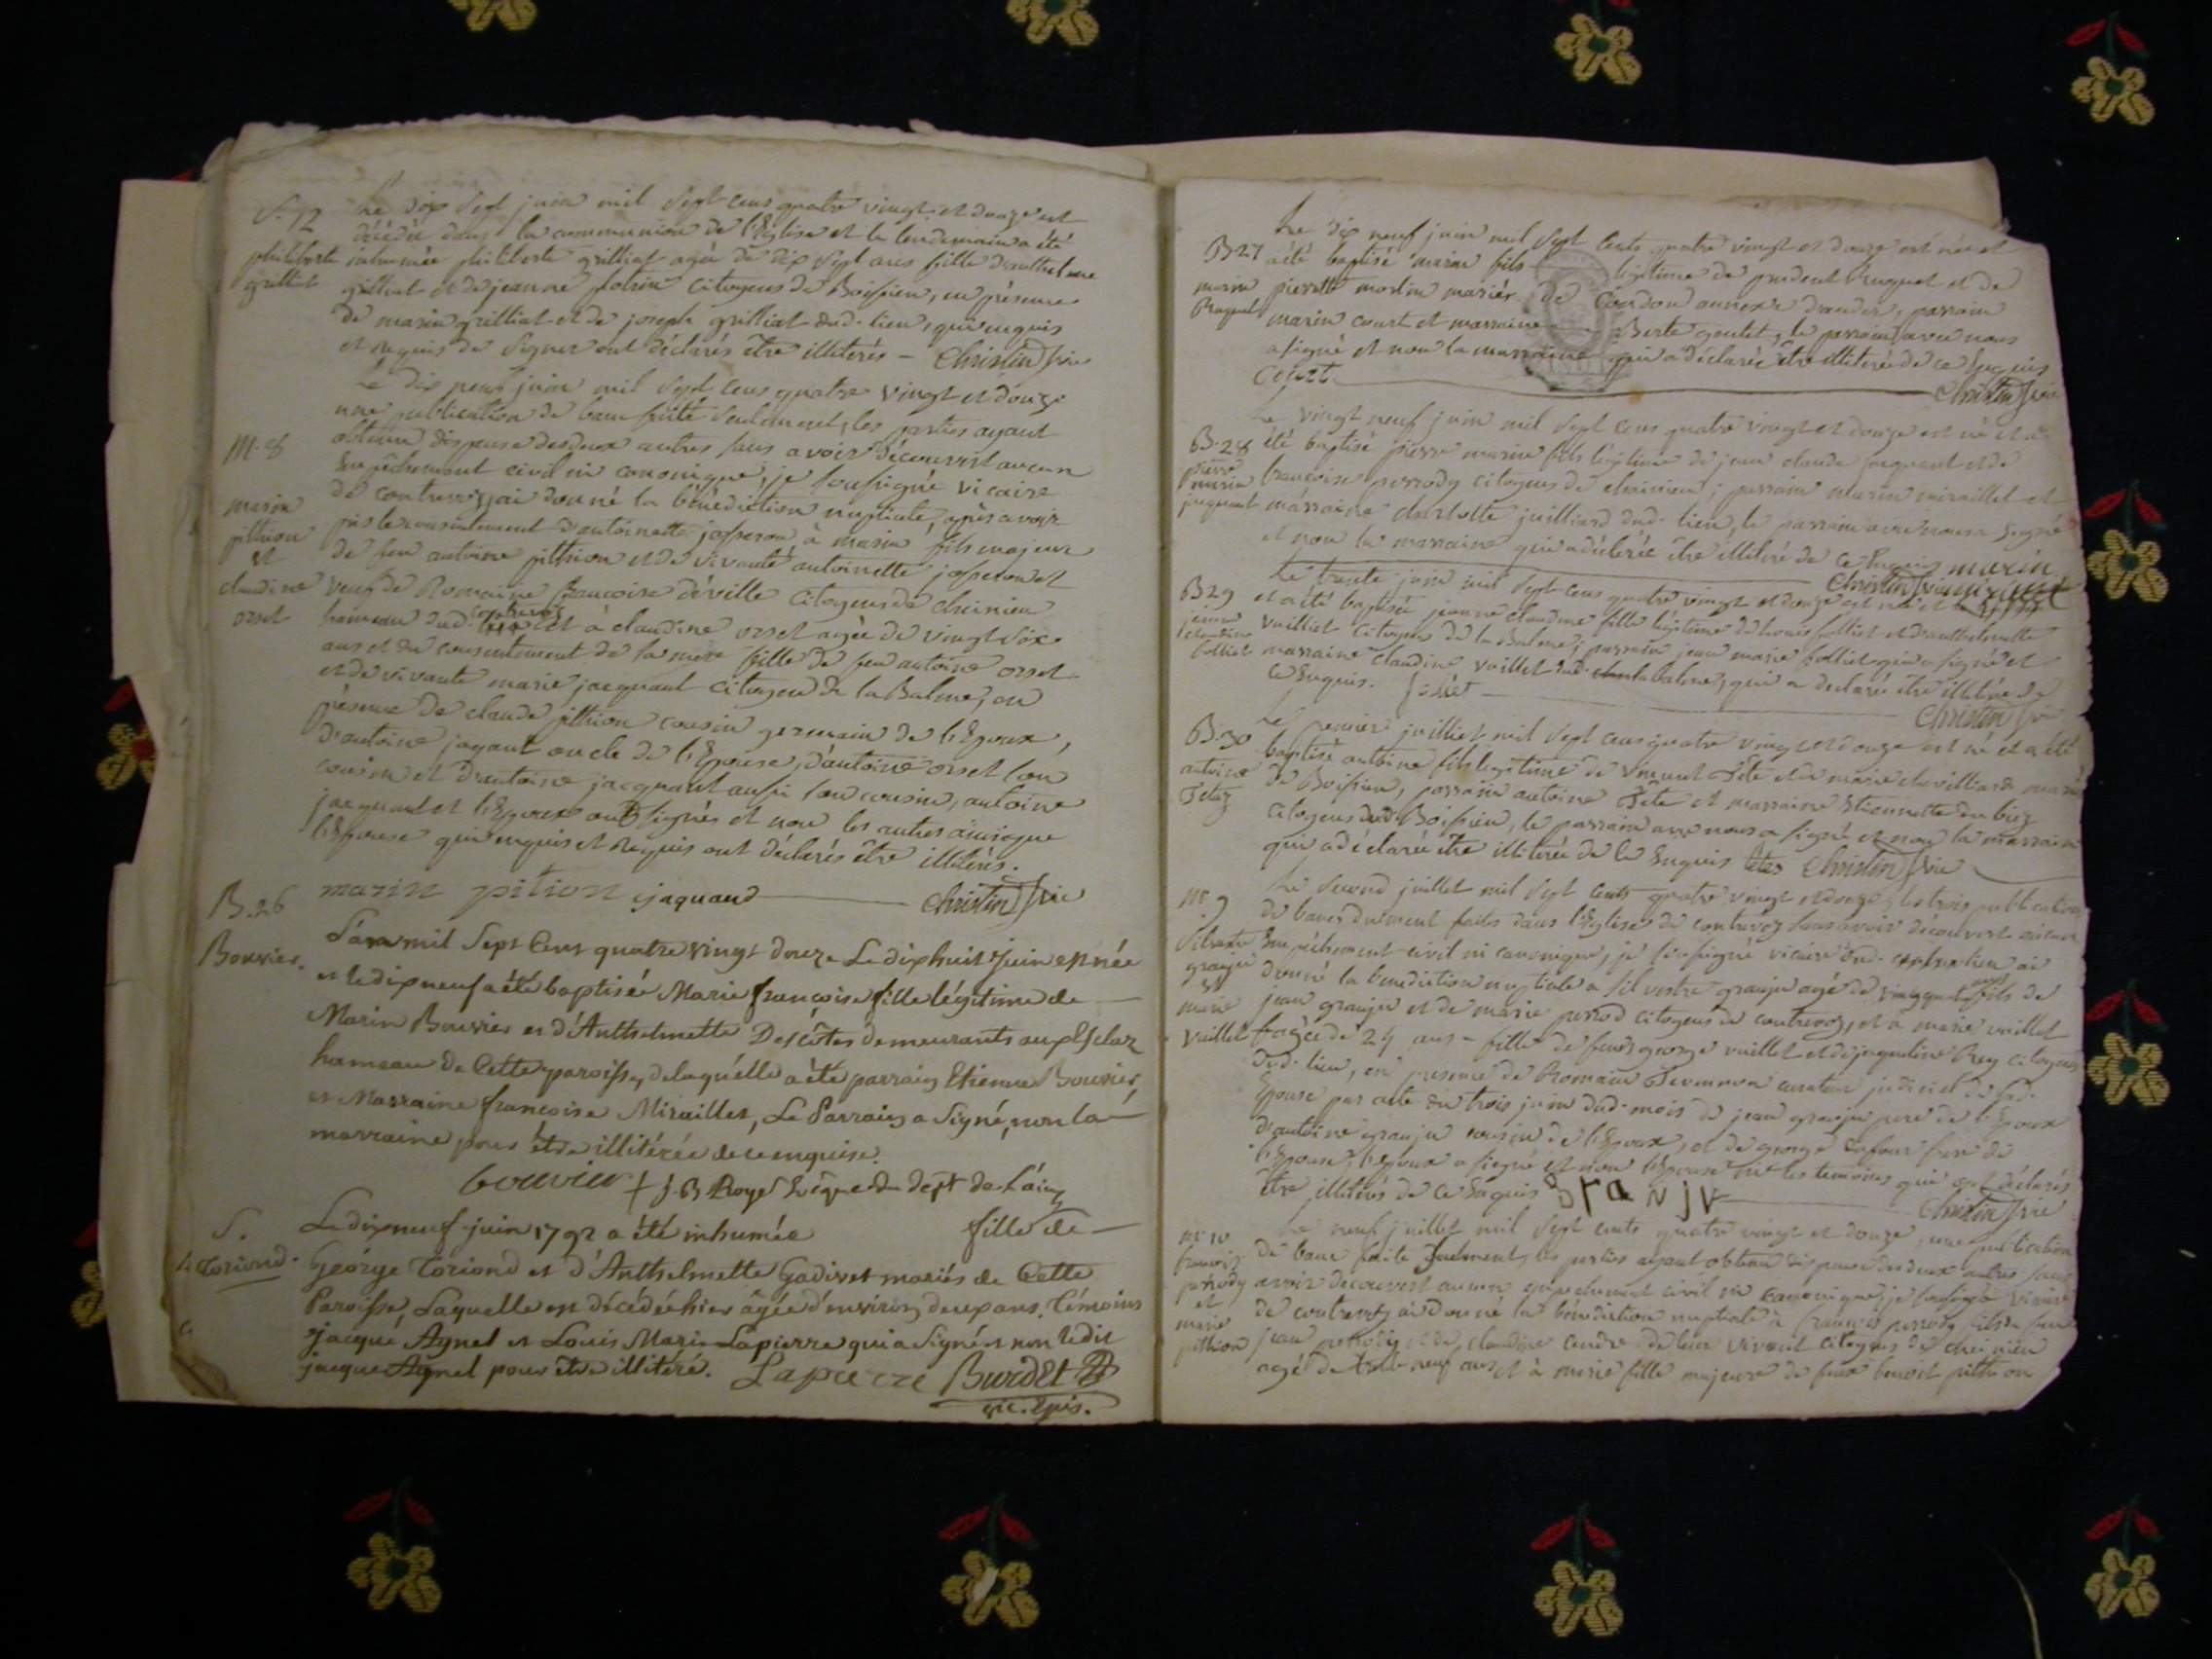 S. 12
philiberte
grilliat
Le dix sept juin mil sept cens quatre vingt et douze est
décédée dans la communion de l'Eglise et le lendemain a été
inhumée philiberte grilliat agée de dix sept ans fille d'anthelme
grilliat et de jeanne citoyens de Boissieu, en présence
de marin grilliat et de joseph grilliat dud. lieu, qui enquis
et requis de signer ont déclarés être illiterés - Christin vic
M. 8
marin
pithion
et
claudine
orset
Le dix neuf juin mil sept cens quatre vingt et douze
une publication de banc faite seulement, les parties ayant
obtenu dispense des deux autres sans avoir découvert aucun
Empêchement civil ni canonique, je soussigné vicaire
de contrevoz ai donné la bénédiction nuptiale, après avoir
d'antoinette josseron à marin fils majeur
de feu antoine pithion et de vivante antoinette josseron et
veuf de Romaine françoise déville citoyens de cheinieu
hameau dud. contrevoz et à claudine orset agée de vingt six
ans et du consentement de sa mere fille de feu antoine orset
et de vivante marie jacquant citoyens de la Balme, en
présence de claude pithion cousin germain de l'Epoux,
d'antoine jaquant oncle de l'Epouse, d'antoine orset son
cousin et d'antoine jacquant aussi son cousin, antoine
jacquant et l'Epoux ont signés et non les autres ainsi que
l'Epouse qui enquis et requis ont déclarés être illiterés.
marin pition jaquand Christin vic
B. 26
Bouvier.
L'an mil Sept Cent quatre vingt douze Le dix huit Juin est née
et le dix neuf a été baptisée Marie françoise fille légitime de
Marin Bouvier et d'Anthelmette Descôtes demeurants
hameau de Cette paroisse, de laquelle a été parrain Etienne Bouvier,
et Marraine françoise Miraillet, Le Parrain a Signé, non la
marraine pour être illitérée de ce enquise.
bouvier + J. B Royer Evêque du dept de l'ain
S.
Toriond.
Le dix neuf juin 1792 a été inhumée fille de
George Toriond et d'Anthelmette Gadivet mariés de Cette
Paroisse, Laquelle est décédée hier âgée d'environ deux ans. témoins
jacque Aynel et Louis Marie Lapierre qui a Signé et non le dit
jacque Aynel pour être illitéré. Lapierre Burdet
vic. Epis.
B 27
marin
Ruquet
Le dix neuf juin mil sept Cents quatre vingt et douze est née et
a été baptisé marin fils légitime de prudent ruquet et de
pierrette martin mariés de Condon annexe d'andert, parrain
marin court et marraine Berte goutet, le parrain avec nous
a signé et non la marraine qui a déclarée être illiterée de ce Enquis
Court Christin vic
B. 28
pierre
marin
jaquant
Le vingt neuf juin mil sept cens quatre vingt et douze est né et a
été baptisé pierre marin fils légitime de jean claude jacquant et de
françoise perrody citoyens de cheinieu; parrain marin miraillet et
marraine charlotte juilliard dud. lieu, le parrain avec nous a signé
et non la marraine qui a déclarée être illiteré de ce Enquis marin
Christin vic miraillet
B 29
jeanne
claudine
folliet
Le trente juin mil sept cens quatre vingt et douze est née et
et a été baptisée jeanne claudine fille légitime de Louis folliet et d'anthelmette
vuilliet citoyens de la Balme; parrain jean marie folliet qui a signé et
marraine claudine vuillet dud. la balme, qui a déclarée être illiterée de
ce Enquis. foliet Christin vic
B. 30
antoine
Tétaz
Le premier juilliet mil sept cens quatre vingt et douze est né et a été
baptisé antoine fils légitime de vincent Tête et de marie chevilliard mariés
de Boissieu, parrain antoine Tête et marraine Etiennette du biez
citoyens dud. Boissieu, le parrain avec nous a signé et non la marraine
qui a déclarée être illiterée de ce Enquis têtes Christin vic
M. 9
Silvestre
granju
et
marie
vuillet
Le second juillet mil sept cents quatre vingt et douze, les trois publications
de bancs duement faites dans l'Eglise de contrevoz sans avoir découvert aucun
Empêchement civil ni canonique, je soussigné vicaire dud. lieu ai
donné la bénédiction nuptiale a silvestre granju agé de vingt quatre ans fils de
jean granju et de marie perrod citoyens de contrevoz, et à marie vuillet
agée de 24 ans - fille de feux george vuillet et de jaqueline Rey citoyens
dud. lieu, en presence de Romain curateur judiciel de lad.
Epouse par acte du trois juin dud. mois de jean granju pere de l'Epoux
d'antoine granju cousin de l'Epoux, et de george dufour frere de
l'Epouse, l'Epoux a signé et non l'Epouse ni les temoins qui ont déclarés
être illiterés de ce Enquis granju Christin vic
M. 10
françois
perrody
et
marie
pithion
Le neuf juillet mil sept cents quatre vingt et douze, une publication
de banc faite seulement, les parties ayant obtenu dispense des deux autres sans
avoir découvert aucun empêchement civil ni canonique, je soussigné vicaire
de contrevoz ai donné la bénédiction nuptiale à françois perrody fils de feu
jean perrody et de claudine de leur vivant citoyens de cheinieu
agé de neuf ans et à marie fille majeure de feux benoit pithion